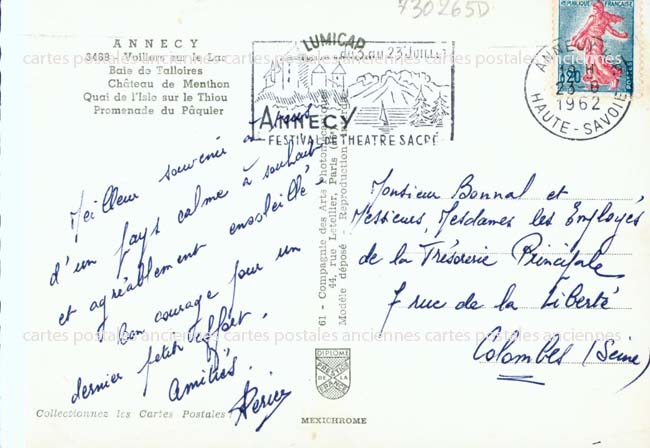 730265D
ANNECY
3469 - Voiliers sur le Lac
Baie de Talloires
Château de Menthon
Quai de l'Isle sur le Thiou
Promenade du Pâquier
LUMICAP
du 3 au 23 JUILLET
ANNECY
FESTIVAL DE THEATRE SACRÉ
REPUBLIQUE FRANÇAISE
0,20
POSTES
ANNECY
18 H
23 - 8
1962
HAUTE-SAVOIE
carte postales anciennes cartes postales anciennes cartes postales anciennes
Meilleur souvenir à tous
d'un pays calme à souhait
et agréablement ensoleillé.
Bon courage pour un
dernier petit effort.
Amitiés.
61 - Compagnie des Arts Photomécaniques
44, rue Letellier, Paris (15e)
Modèle déposé - Reproduction interdite
Monsieur Bonnal et
Messieurs, Mesdames les Employés
de la Trésorerie Principale
7 rue de la Liberté
Colombes (Seine)
carte postales anciennes cartes postales anciennes cartes postales anciennes
DIPLOME
PRESTIGE
DE LA
FRANCE
Collectionnez les Cartes Postales !
MEXICHROME